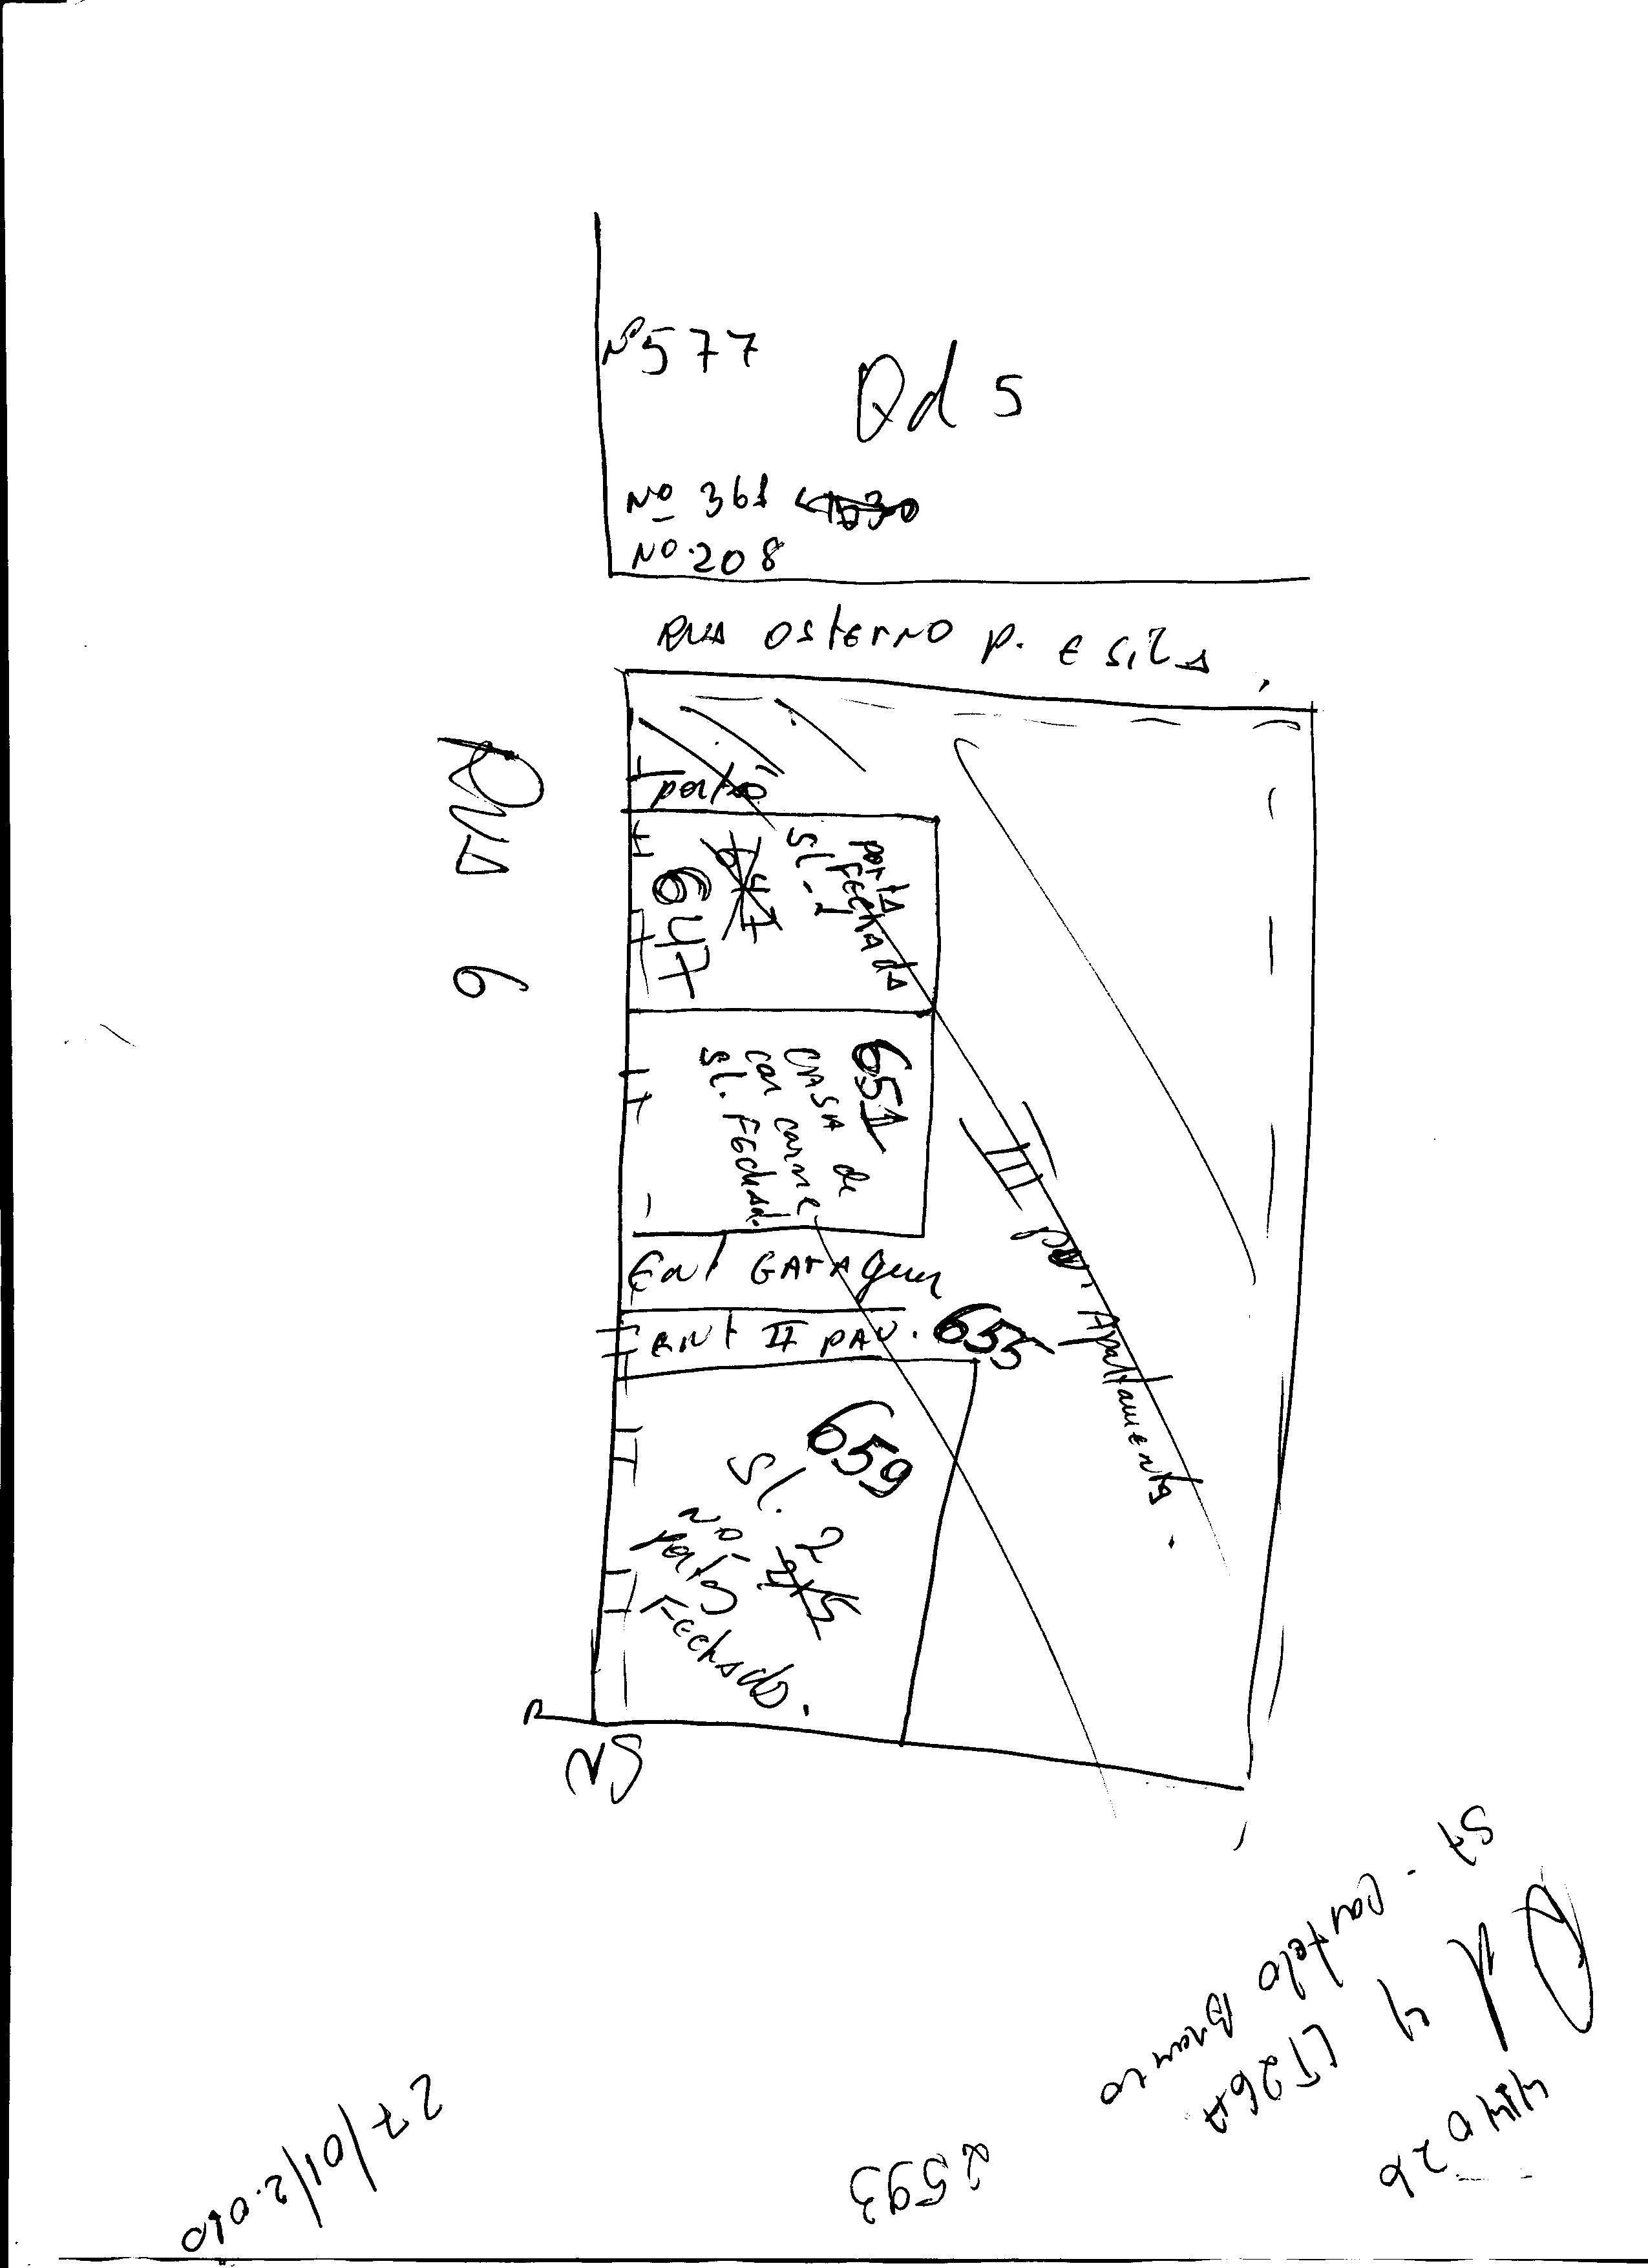 Nº 577
Qd 5
Nº 361
Nº 208
RUA OSTERNO P. E SILVA
RUA 6
portão
porta
FECHADA
SL. 1
647
651
CASA de
car carne
SL. FECHAd.
Ent GARAgem
ENT II PAV. 655
III pav. Apartamentos.
659
SL. 2
portão
Fechado.
ST. Castelo Branco
Qd 4 LT26A
2593
27/01/2.010